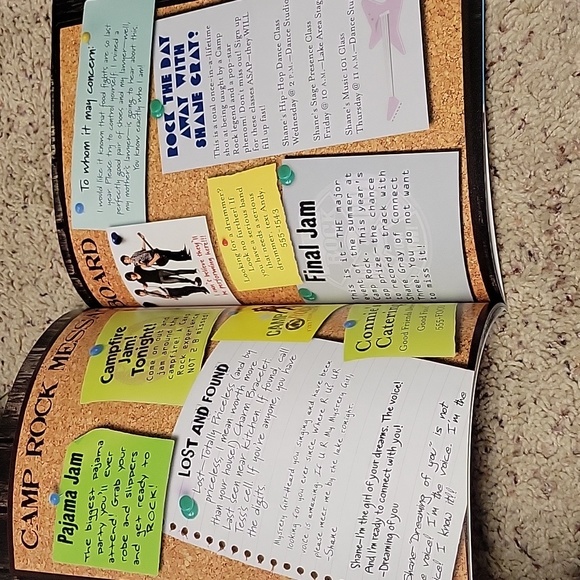 CAMP ROCK MESS
OARD
Pajama Jam
The biggest pajama
party you'll ever
attend! Grab your
robe and slippers
and get ready to
ROCK!
Campfire
Jam!
Tonight!
Come on out and
jam around the
campfire! A Camp
Rock experience
NOT 2 B missed
CAMP
LOST AND FOUND
Lost—Totally Priceless (and by
priceless, I mean worth more
than your house) Charm Bracelet.
Last seen near Kitchen. If found, call
Tess's cell. If you're anyone, you have
the digits.
Mystery Girl—Heard you singing and have been
looking for you ever since. Where R U? UR
voice is amazing. If U R My Mystery Girl
please meet me by the lake tonight.
-Shane
Shane—I'm the girl of your dreams. The voice!
And I'm ready to connect with you!
-Dreaming of you
Shane—"Dreaming of you" is not
voice! I'm the voice. I'm the
I know it!!
Connie
Caterin
Good Friends
Good Foo
555-FOO
To whom it may concern:
I would like it known that food fights are so last
year. Please try to control yourself. I ruined a
perfectly good pair of shoes and my lawyer—well,
my mother's lawyer—is going to hear about this.
You know exactly who I am!
ROCK THE DAY
AWAY WITH
SHANE GRAY!
This is a total once-in-a-lifetime
shot at being taught by a Camp
Rock legend and a pop-star
phenom! Don't miss out! Sign up
for these classes ASAP—they WILL
fill up fast!
Shane's Hip-Hop Dance Class
Wednesday @ 2 P.M.—Dance Studio
Shane's Stage Presence Class
Friday @ 10 A.M.—Lake Area Stage
Shane's Music 101 Class
Thursday @ 11 A.M.—Dance Stu
Looking for a drummer?
Look no further! If
you have a nervous band
that needs a nervous
drummer, text Andy.
555-1543
performing here!!!
Final Jam
This is it—THE major
event of the summer at
Camp Rock—this year's
prize—the chance
to record a track with
Shane Gray of Connect
You do not want
to miss it!